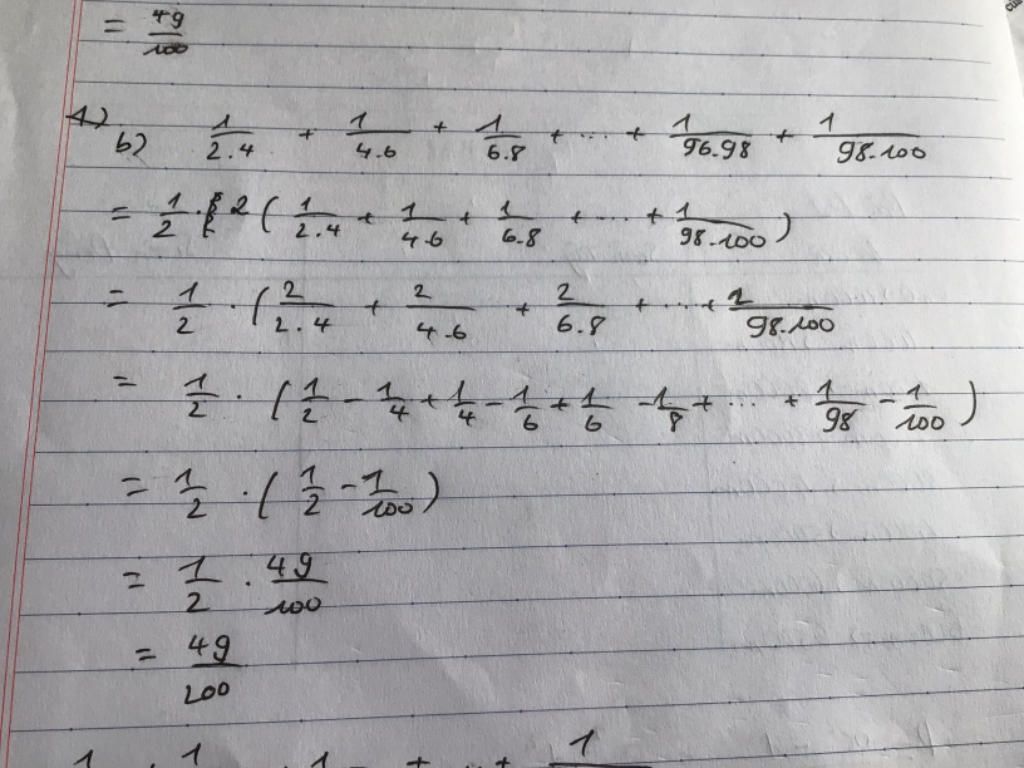 = 49/100
1)
b) 1/2.4 + 1/4.6 + 1/6.8 + ... + 1/96.98 + 1/98.100
= 1/2 . 2 ( 1/2.4 + 1/4.6 + 1/6.8 + ... + 1/98.100 )
= 1/2 . ( 2/2.4 + 2/4.6 + 2/6.8 + ... + 2/98.100
= 1/2 . ( 1/2 - 1/4 + 1/4 - 1/6 + 1/6 - 1/8 + ... + 1/98 - 1/100 )
= 1/2 . ( 1/2 - 1/100 )
= 1/2 . 49/100
= 49/200